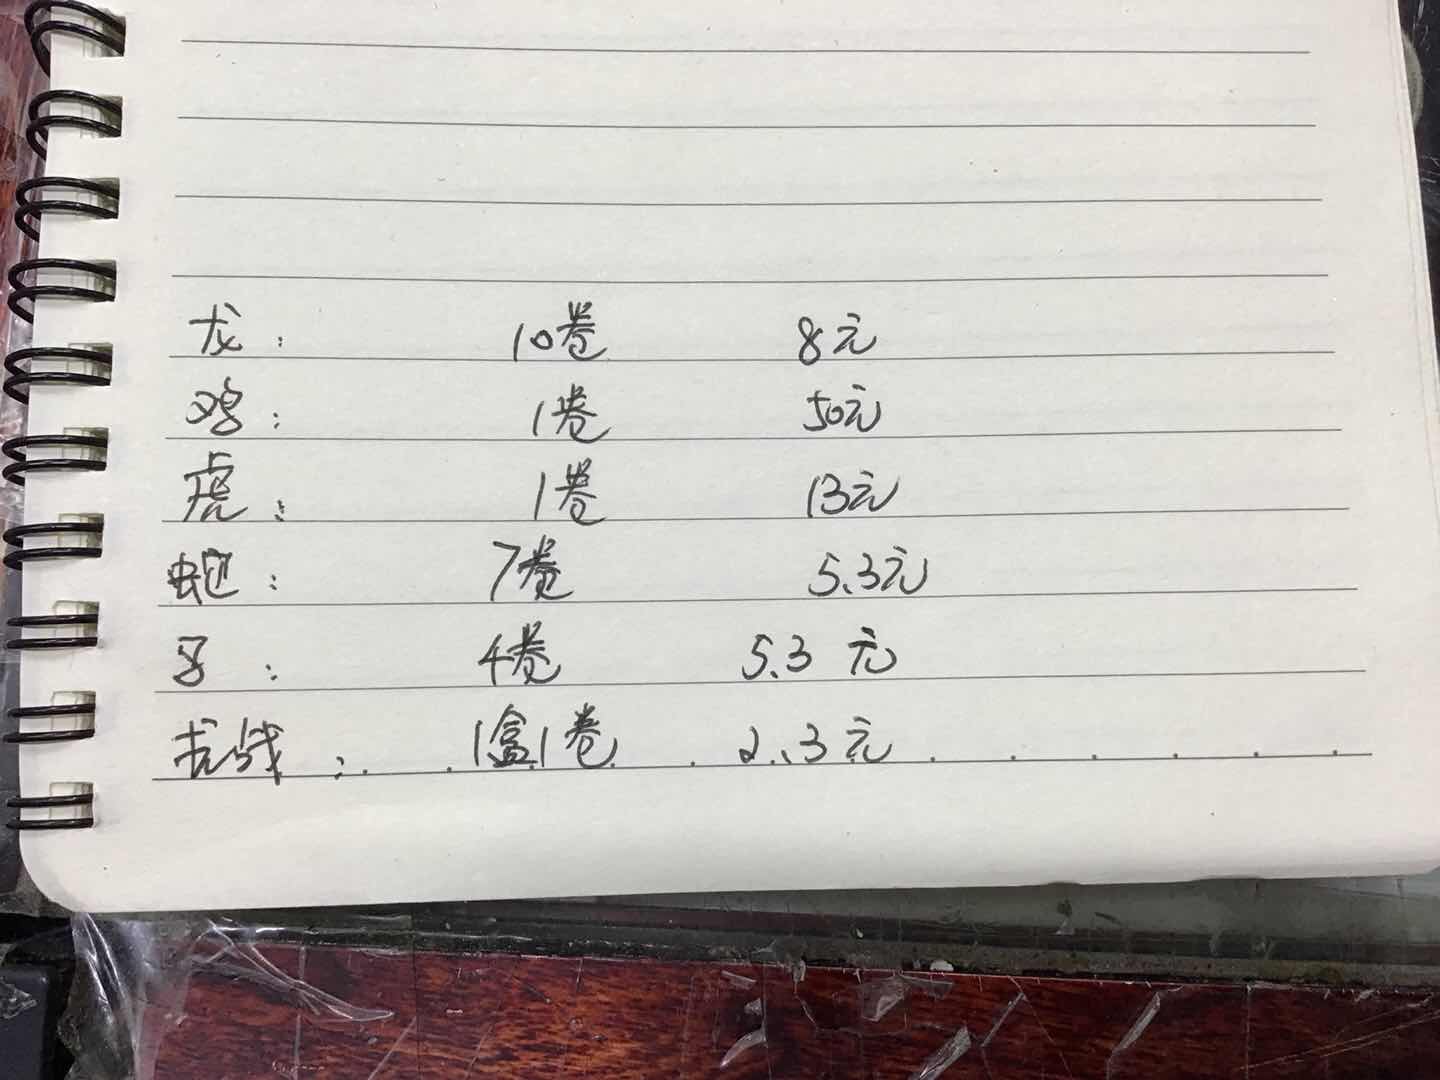 龙： 10卷 8元
鸡： 1卷 50元
虎： 1卷 13元
蛇： 7卷 5.3元
： 4卷 5.3元
抗战： 1盒1卷 2.3元